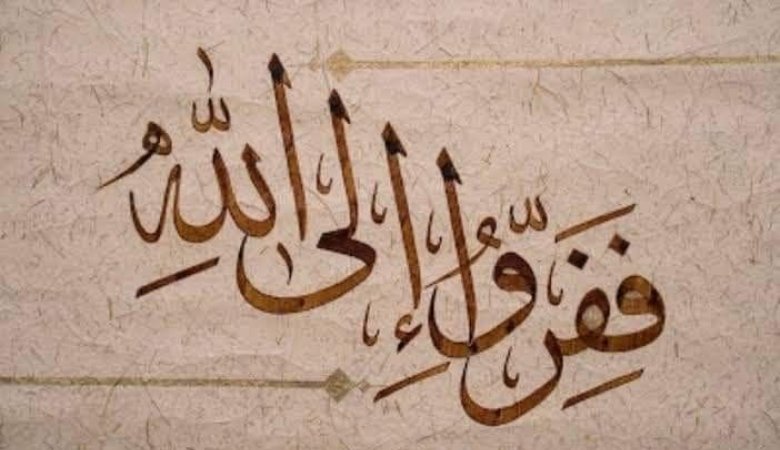 فَفِرُّوا إِلَى اللّٰهِ